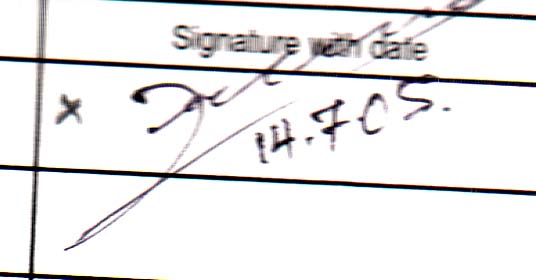 Signature with date
x
14.7.05.